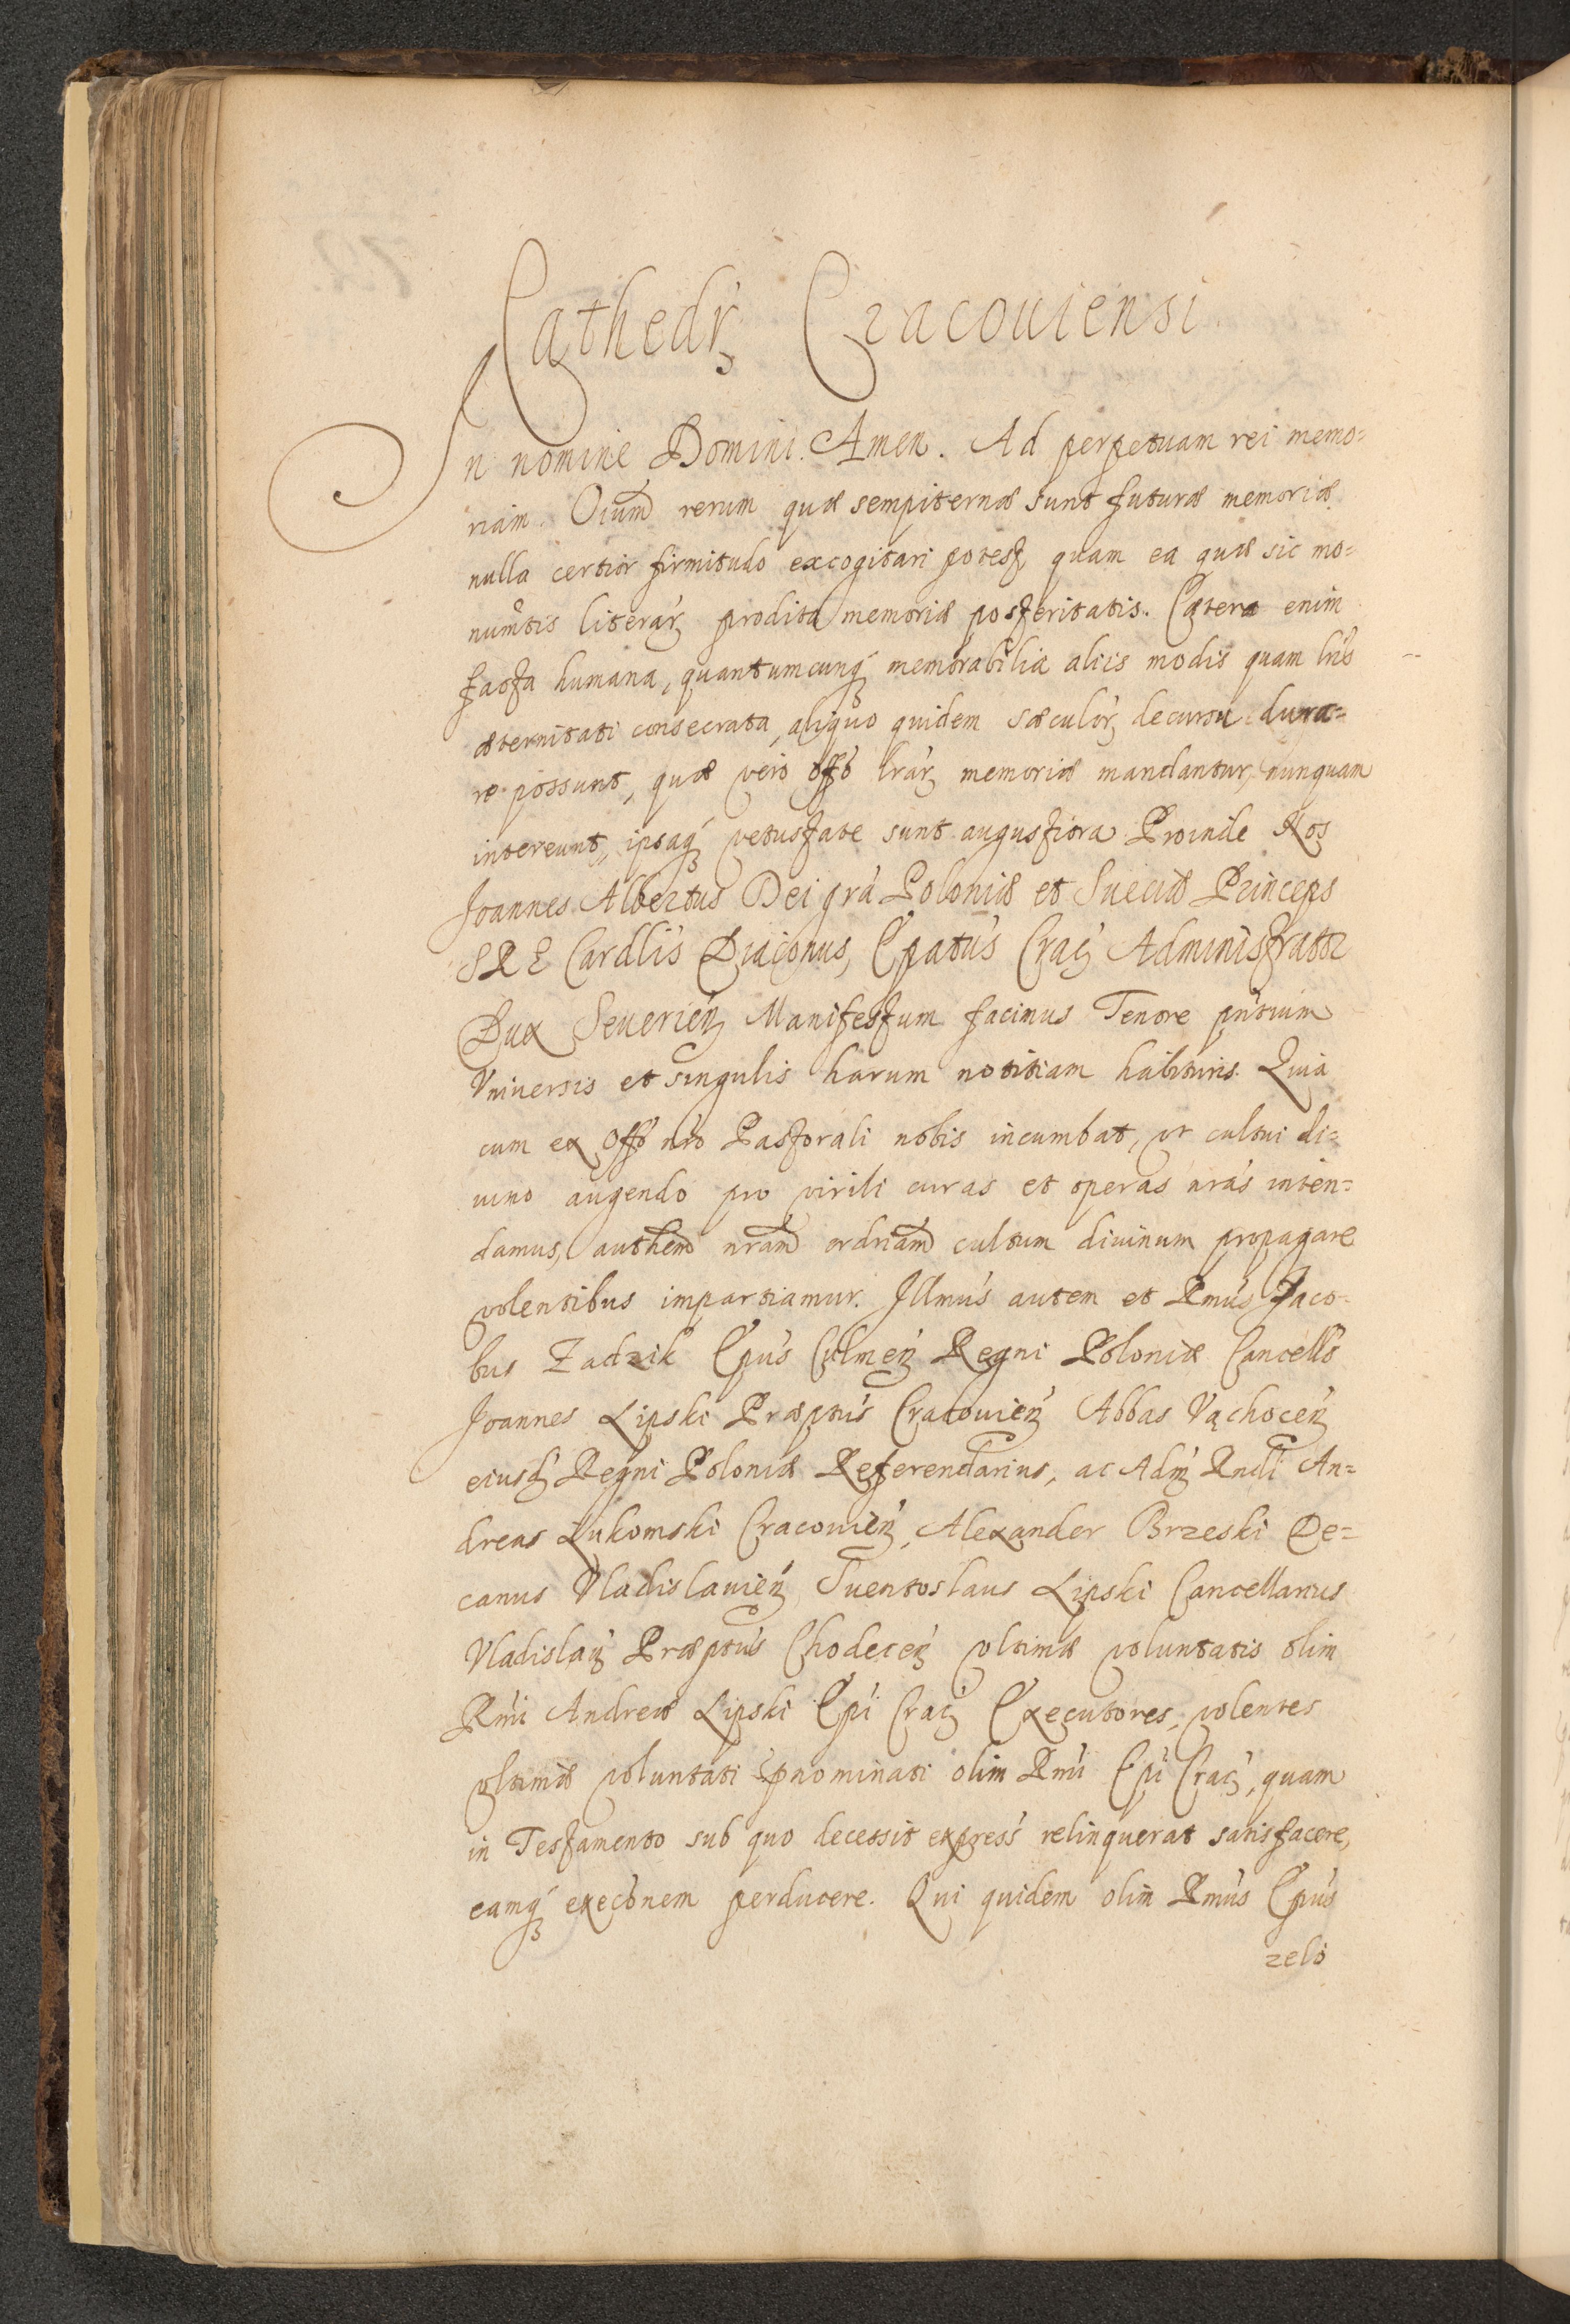 Cathedrꝫ Cracouiensi.
In nomine Domini. Amen. Ad perpetuam rei memo=
riam. Oium̃ rerum quæ sempiternæ sunt futuræ memoriæ
nulla certior firmitudo excogitari potest, quam ea quæ sic mo=
num̃tis literarꝫ prodita memoriæ posteritatis. Cætera enim
facta humana, quantumcunqꝫ memorabilia aliis modis quam lrĩs
æternitati consecrata, aliquo quidem sæculorꝫ decursu dura=
re possunt, quæ vero offõ lrarꝫ memoriæ mandantur, nunquam
intereunt, ipsaqꝫ vetustate sunt augustiora Proinde Nos
Joannes Albertus Dei grã Poloniæ et Sueciæ Princeps
S R E Cardlĩs Diaconus, Epatũs Cracꝫ Administrator
Dux Seuerieñ Manifestum facimus Tenore pñtium
Vniuersis et singulis harum notitiam habituris. Quia
cum ex Offõ nrõ Pastorali nobis incumbat, vt cultui di=
uino augendo pro virili curas et operas nrãs inten=
damus, authem̃ nram̃ ordriam̃ cultum diuinum propagare
volentibus impartiamur. Illmũs autem et Rmũs Jaco=
bus Zadzik Epũs Culmeñ Regni Poloniæ Cancells̃
Joannes Lipski Præptũs Cracouieñ Abbas Vąchoceñ
eiusdꝫ Regni Poloniæ Referendarius, ac Admꝫ Rndĩ An=
dreas Lukomski Cracouieñ, Alexander Brzeski De=
canus Vladislauieñ Suentoslaus Lipski Cancellarius
Vladislañ Præptũs Chodeceñ vltimæ voluntatis olim
Rmĩ Andreæ Lipski Epĩ Cracꝫ Executores, volentes
vltimæ voluntati pnominati olim Rmĩ Epĩ Cracꝫ, quam
in Testamento sub quo decessit express̃ relinquerat satisfacere,
eamqꝫ execõnem perducere. Qui quidem olim Rmũs Epũs
zelo